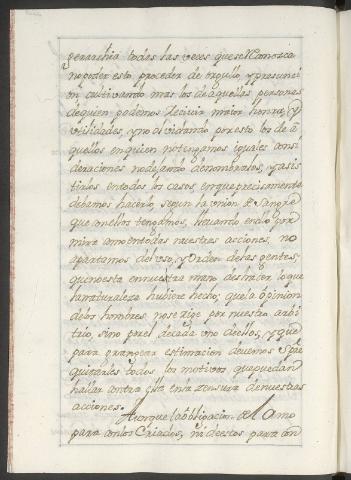 gerarchia todas las veces que se conozca
no poder esto proceder de orgullo, y presuncion
on cultivando mas los de aquellas personas
de quien podemos recivir maior honra, y
utilidades, y no olvidando por esto los de a
quellos en quien no tengamos iguales consi
deraciones no dejando de honrarlos, y asis
tirlos en todos los casos, en que precisamente
debamos hacerlo, segun la union de sangre
que con ellos tengamos, llevando en ello por
mira como en todas nuestras acciones, no
apartarnos del uso, y orden de las gentes,
que no esta en nuestra mano deshacer lo que
la naturaleza hubiere hecho; que la opinion
de los hombres, no se rige por nuestro arbi
trio, sino por el de cada uno de ellos, y que
para grangear estimacion devemos
quitarles todos los motivos que puedan
hallar contra ella en la zensura de nuestras
acciones.
Aunque la obligacion del Amo
para con los Criados, ni de estos para con